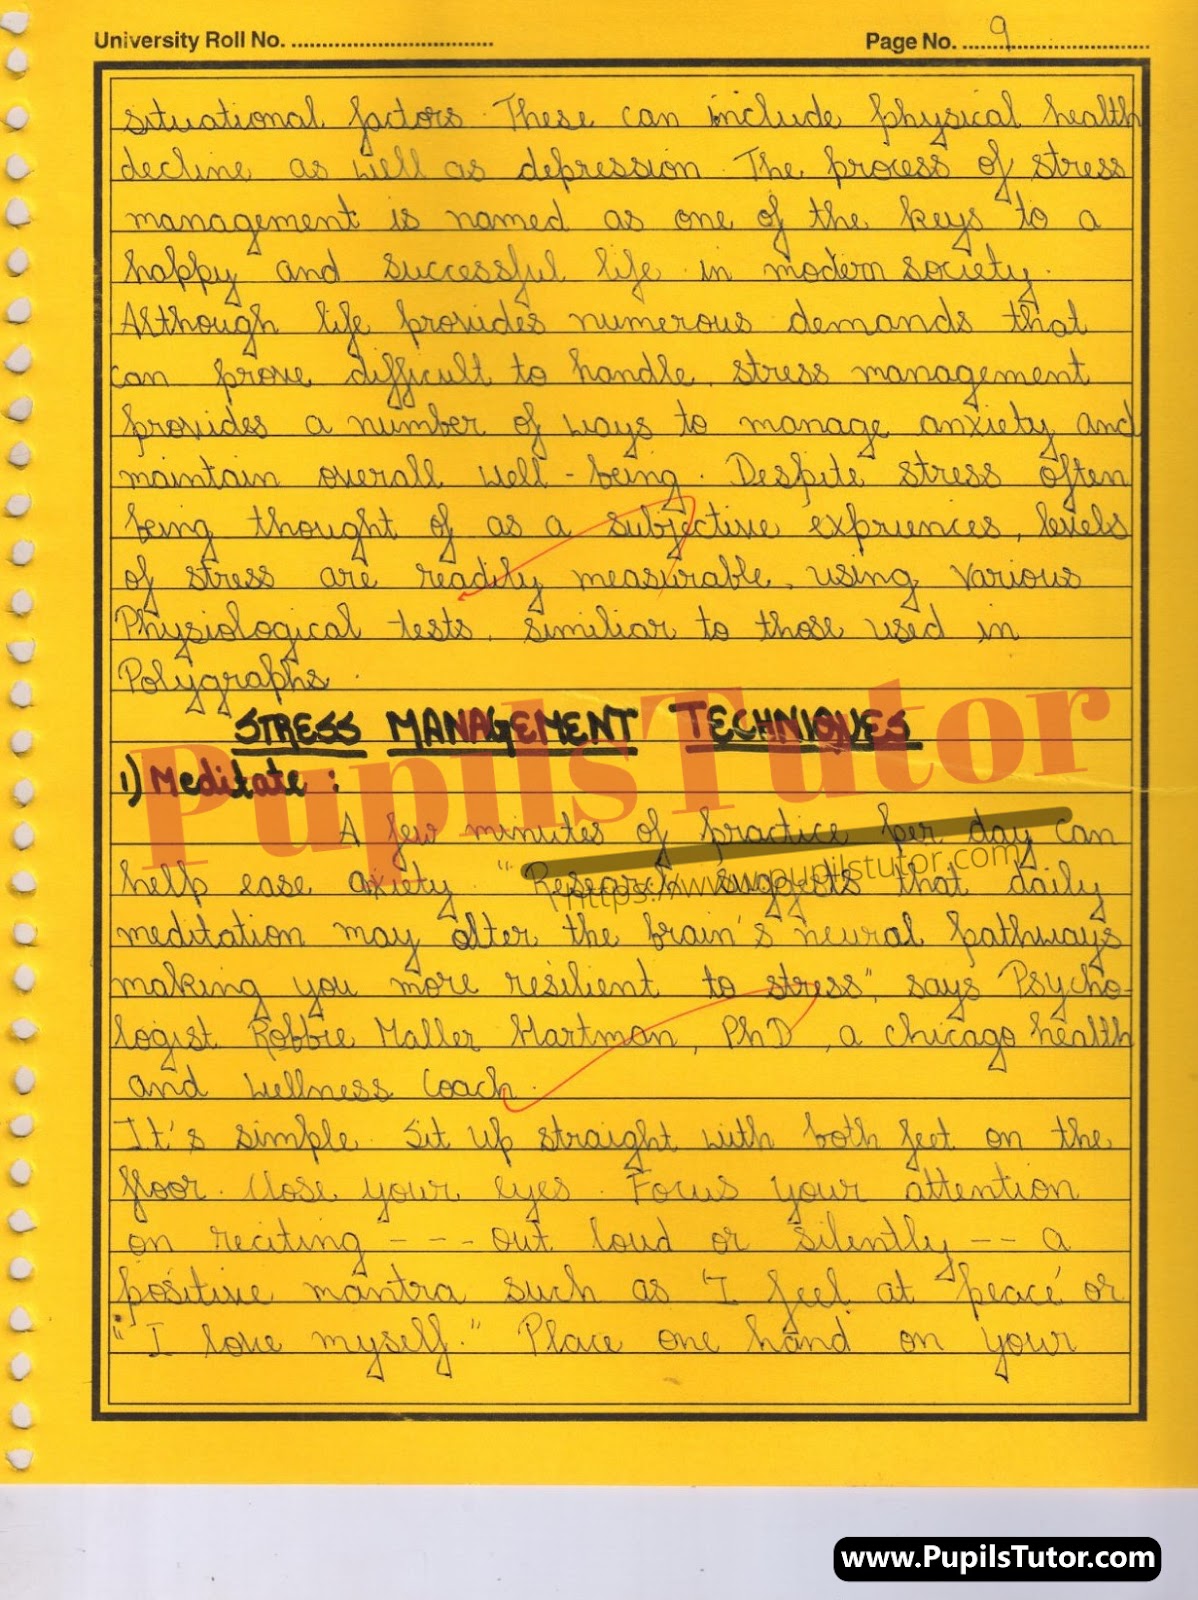 University Roll No. ................................ Page No. ....9............................
situational factors. These can include physical health
decline as well as depression. The process of stress
management is named as one of the keys to a
happy and successful life in modern society.
Although life provides numerous demands that
can prove difficult to handle, stress management
provides a number of ways to manage anxiety and
maintain overall well-being. Despite stress often
being thought of as a subjective expriences, levels
of stress are readily measurable, using various
Physiological tests, similiar to those used in
Polygraphs.
STRESS MANAGEMENT TECHNIQUES
1) Meditate :
A few minutes of practice per day can
help ease axiety. "Research suggests that daily
meditation may alter the brain's neural pathways
making you more resilient to stress", says Psycho-
logist Robbie Maller Hartman, PhD, a chicago health
and wellness coach.
It's simple. Sit up straight with both feet on the
floor. Close your eyes. Focus your attention
on reciting --- out loud or silently -- a
positive mantra such as 'I feel at peace' or
"I love myself." Place one hand on your
PupilsTutor
https://www.pupilstutor.com
www.PupilsTutor.com